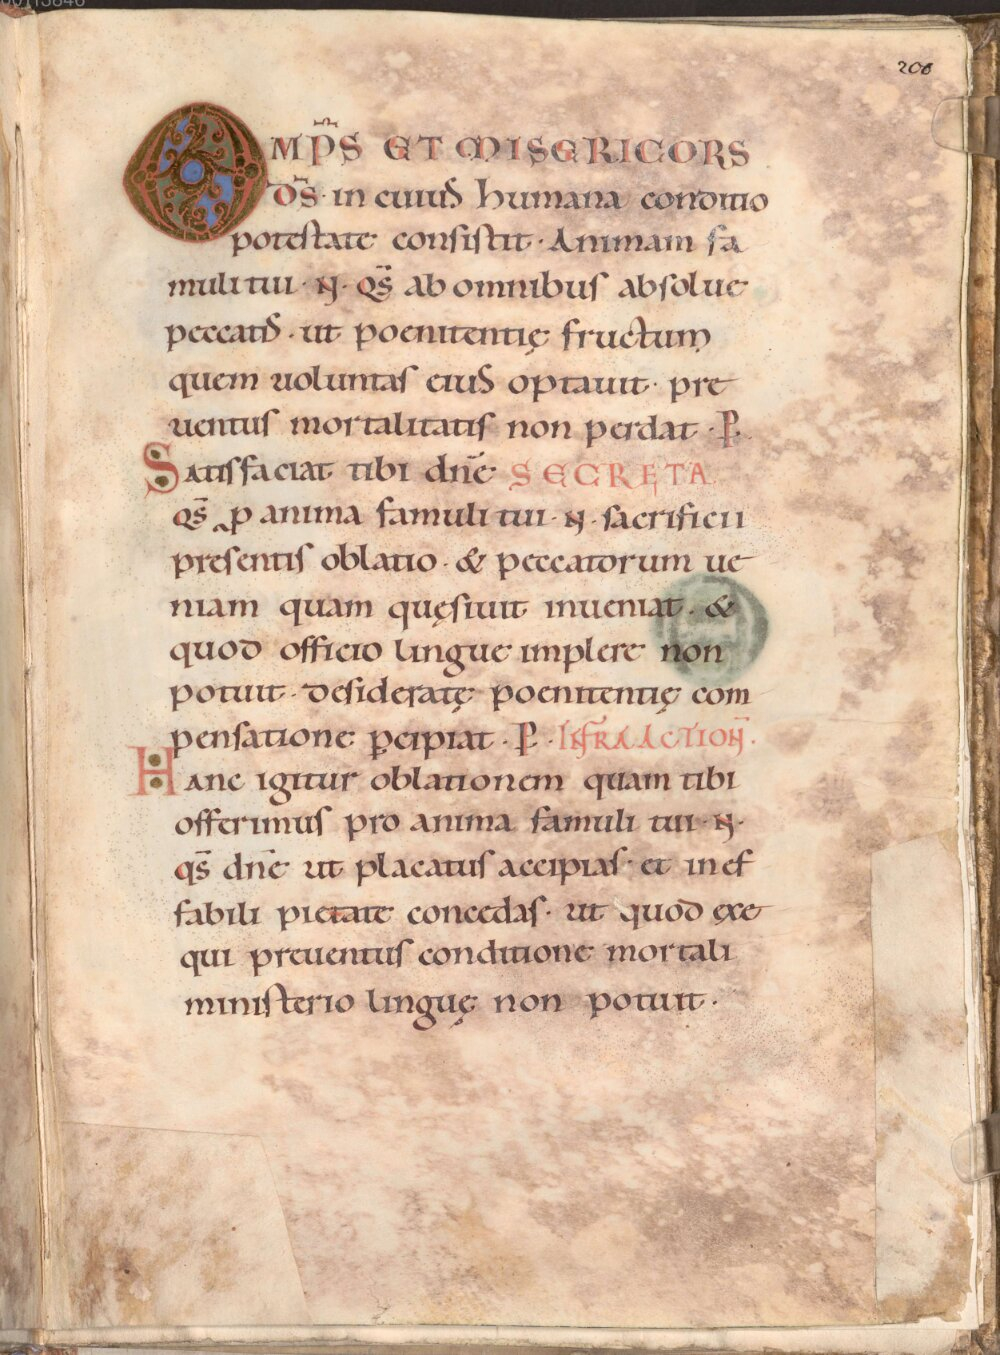 206
OMP̃S ET MISERICORS
D̅S · in cuius humana conditio
potestate consistit · Animam fa
muli tui · N · Q̅S ab omnibus absolue
peccatis · ut poenitentię fructum
quem uoluntas eius optauit · pre
uentus mortalitatis non perdat · P.
Satisfaciat tibi dn̅e SECRETA
q̅s p anima famuli tui · N · sacrificii
presentis oblatio · & peccatorum ue
niam quam quęsiuit inueniat · &
quod officio lingue implere non
potuit · desideratę poenitentię com
pensatione p̲cipiat · P · INFRA ACTION̅ .
Hanc igitur oblationem quam tibi
offerimus pro anima famuli tui · N ·
q̅s dn̅e ut placatus accipias · et inef
fabili pietate concedas · ut quod exe
qui preuentus conditione mortali
ministerio linguę non potuit ·